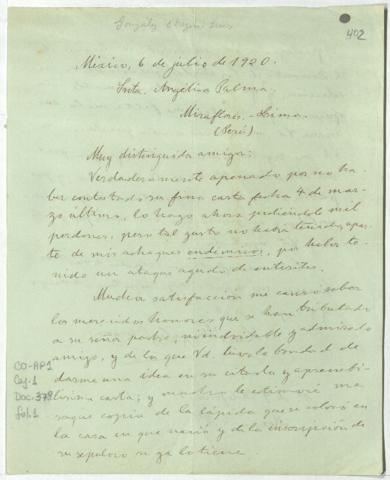 González Obregón Luis
402
México, 6 de julio de 1920.
Srita. Angélica Palma.
Miraflores.-Lima.
(Perú).
Muy distinguida amiga:
Verdaderamente apenado por no ha-
ber contestado su fina carta fecha 4 de mar-
zo último, lo hago ahora pidiéndole mil
perdones, pero tal gusto no había tenido, apar-
te de mis achaques endémicos, por haber te-
nido un ataque agudo de enteritis.
Mucha satisfacción me causó saber
los merecidos honores que se han tributado
a su señor padre, mi inolvidable y admirado
amigo, y de lo que Vd. tuvo la bondad de
darme una idea en su citada y apreciabi-
lísima carta; y mucho le estimaré me
saque copia de la lápida que se colocó en
la casa en que nació y de la inscripción de
su sepulcro si ya lo tiene.
CO-AP1
Caj.1
Doc.378
fol.1